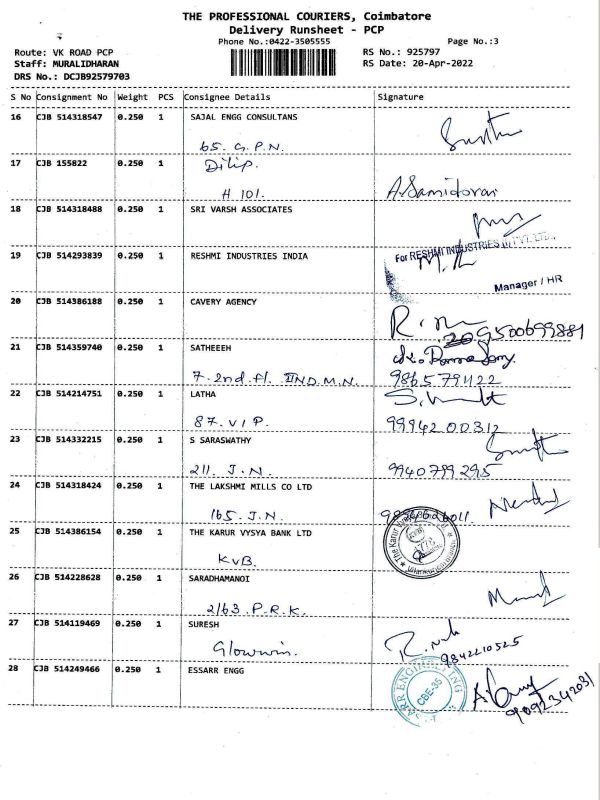 THE PROFESSIONAL COURIERS, Coimbatore
Delivery Runsheet - PCP
Phone No.:0422-3505555 Page No.:3
Route: VK ROAD PCP RS No.: 925797
Staff: MURALIDHARAN RS Date: 20-Apr-2022
DRS No.: DCJB92579703
S No Consignment No Weight PCS Consignee Details Signature
16 CJB 514318547 0.250 1 SAJAL ENGG CONSULTANS
65. G.P.N.
17 CJB 155822 0.250 1 Dilip.
H 101. A.Samidorai
18 CJB 514318488 0.250 1 SRI VARSH ASSOCIATES
19 CJB 514293839 0.250 1 RESHMI INDUSTRIES INDIA
For RESHMI INDUSTRIES (I) PVT. LTD.,
Manager / HR
20 CJB 514386188 0.250 1 CAVERY AGENCY
9500699881
21 CJB 514359740 0.250 1 SATHEEEH
7. 2nd fl. IIND.M.N. 9865791122
22 CJB 514214751 0.250 1 LATHA
87. V I P. 9994200312
23 CJB 514332215 0.250 1 S SARASWATHY
211. J.N. 9940799295
24 CJB 514318424 0.250 1 THE LAKSHMI MILLS CO LTD
165. J.N.
25 CJB 514386154 0.250 1 THE KARUR VYSYA BANK LTD
KVB.
26 CJB 514228628 0.250 1 SARADHAMANOI
2/63 P.R.K.
27 CJB 514119469 0.250 1 SURESH
Glowwin. 9842210525
28 CJB 514249466 0.250 1 ESSARR ENGG
CBE-35
9092342031